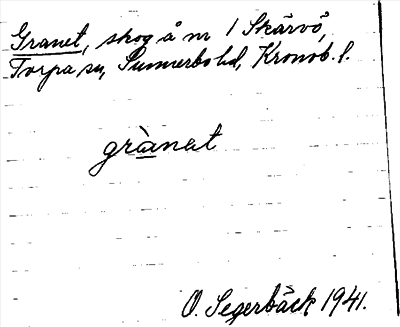 Granet, skog å nr 1 Skärvö,
Torpa sn, Sunnerbo hd, Kronob. l.
grànet
O. Segerbäck 1941.